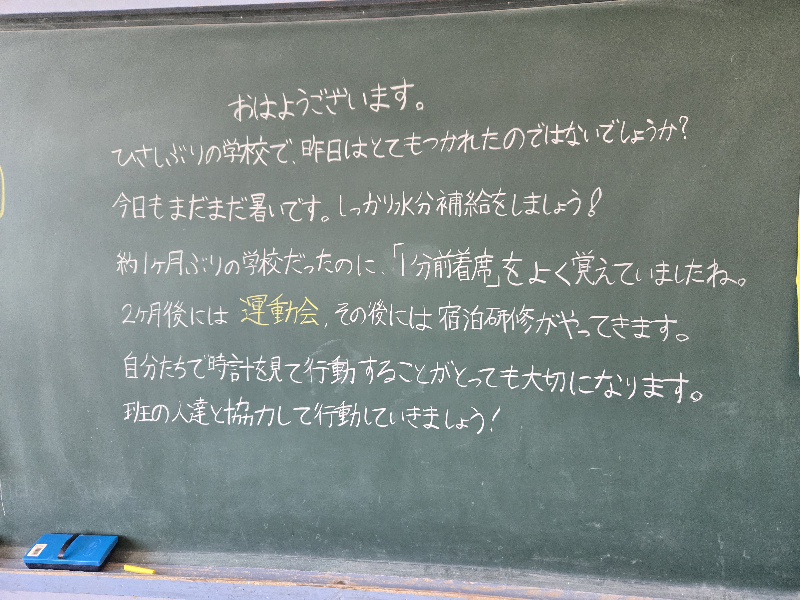 おはようございます。
ひさしぶりの学校で、昨日はとてもつかれたのではないでしょうか?
今日もまだまだ暑いです。しっかり水分補給をしましょう!
約1ヶ月ぶりの学校だったのに、「1分前着席」をよく覚えていましたね。
2ヶ月後には運動会,その後には宿泊研修がやってきます。
自分たちで時計を見て行動することがとっても大切になります。
班の人達と協力して行動していきましょう!